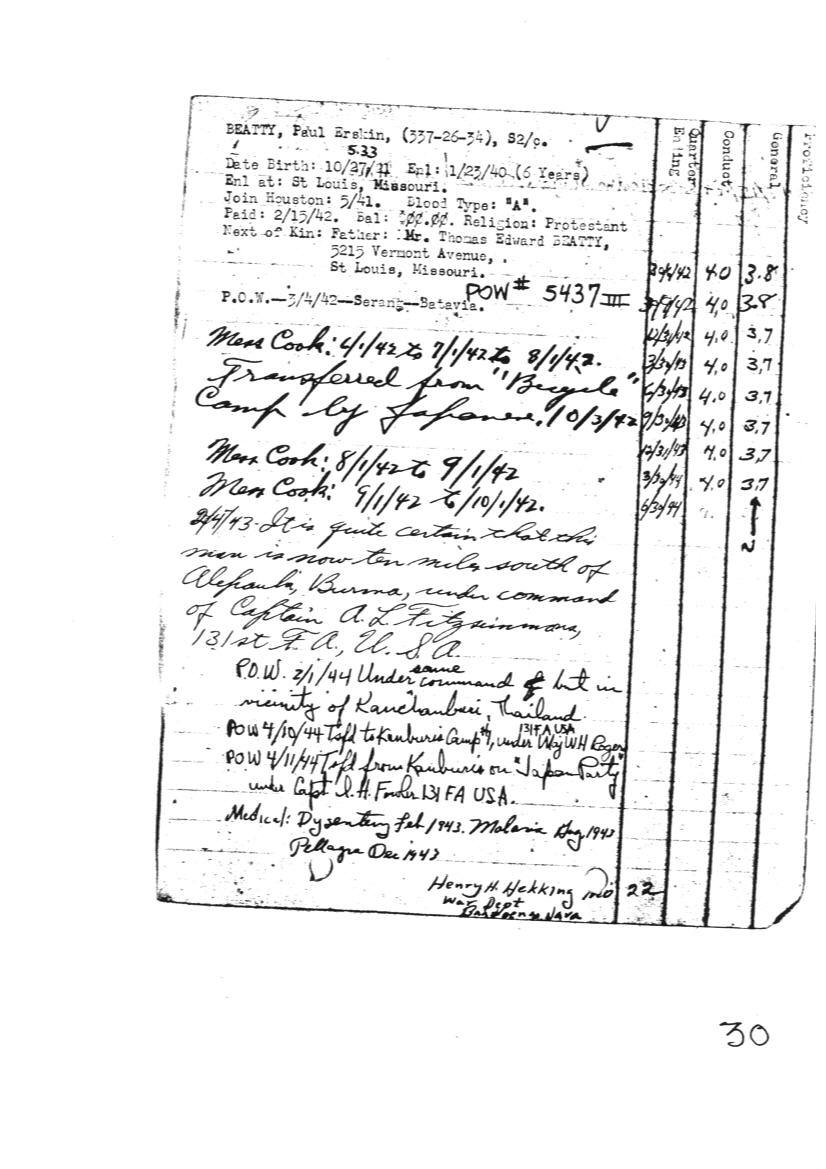 BEATTY, Paul Erskin, (337-26-34), S2/c.
5.33
Date Birth: 10/27/21 Enl: 1/23/40 (6 Years)
Enl at: St Louis, Missouri.
Join Houston: 5/41. Blood Type: "A".
Paid: 2/15/42. Bal: Religion: Protestant
Next of Kin: Father: Mr. Thomas Edward BEATTY,
5215 Vermont Avenue,
St Louis, Missouri.
POW# 5437 III
P.O.W.—3/4/42—Serang—Batavia.
Mess Cook: 6/1/42 to 7/1/42 to 8/1/42.
Transferred from "Bicycle"
Camp by Japanese, 10/3/42
Mess Cook: 8/1/42 to 9/1/42
Mess Cook: 9/1/42 to 10/1/42.
2/4/43- It is quite certain that this
man is now ten miles south of
Burma, under command
of Captain A. L. Fitzsimmons,
131st F. A., U. S. A.
P.O.W. 2/1/44 Under same command but in
vicinity of Kanchanburi, Thailand.
POW 4/10/44 Tsfd to Kanburis Camp #1, under Maj WH Rogers 131 FA USA
POW 4/11/44 Tsfd from Kanburis on "Japan Party"
under Capt I. H. Fowler 131 FA USA.
Medical: Dysentery Feb 1943. Malaria Aug 1943
Pellagra Dec 1943
Henry H. Hekking MD
War Dept
Bandoeng Java
Quarter Ending Conduct General Proficiency
42 4.0 3.8
42 4.0 3.8
12/31/42 4.0 3.7
3/31/43 4.0 3.7
6/30/43 4.0 3.7
9/30/43 4.0 3.7
12/31/43 4.0 3.7
3/30/44 4.0 3.7
6/30/44
2
22
30